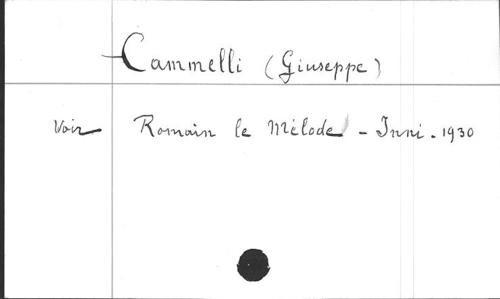 Cammelli (Giuseppe)
Voir Romain le Mélode - Inni - 1930